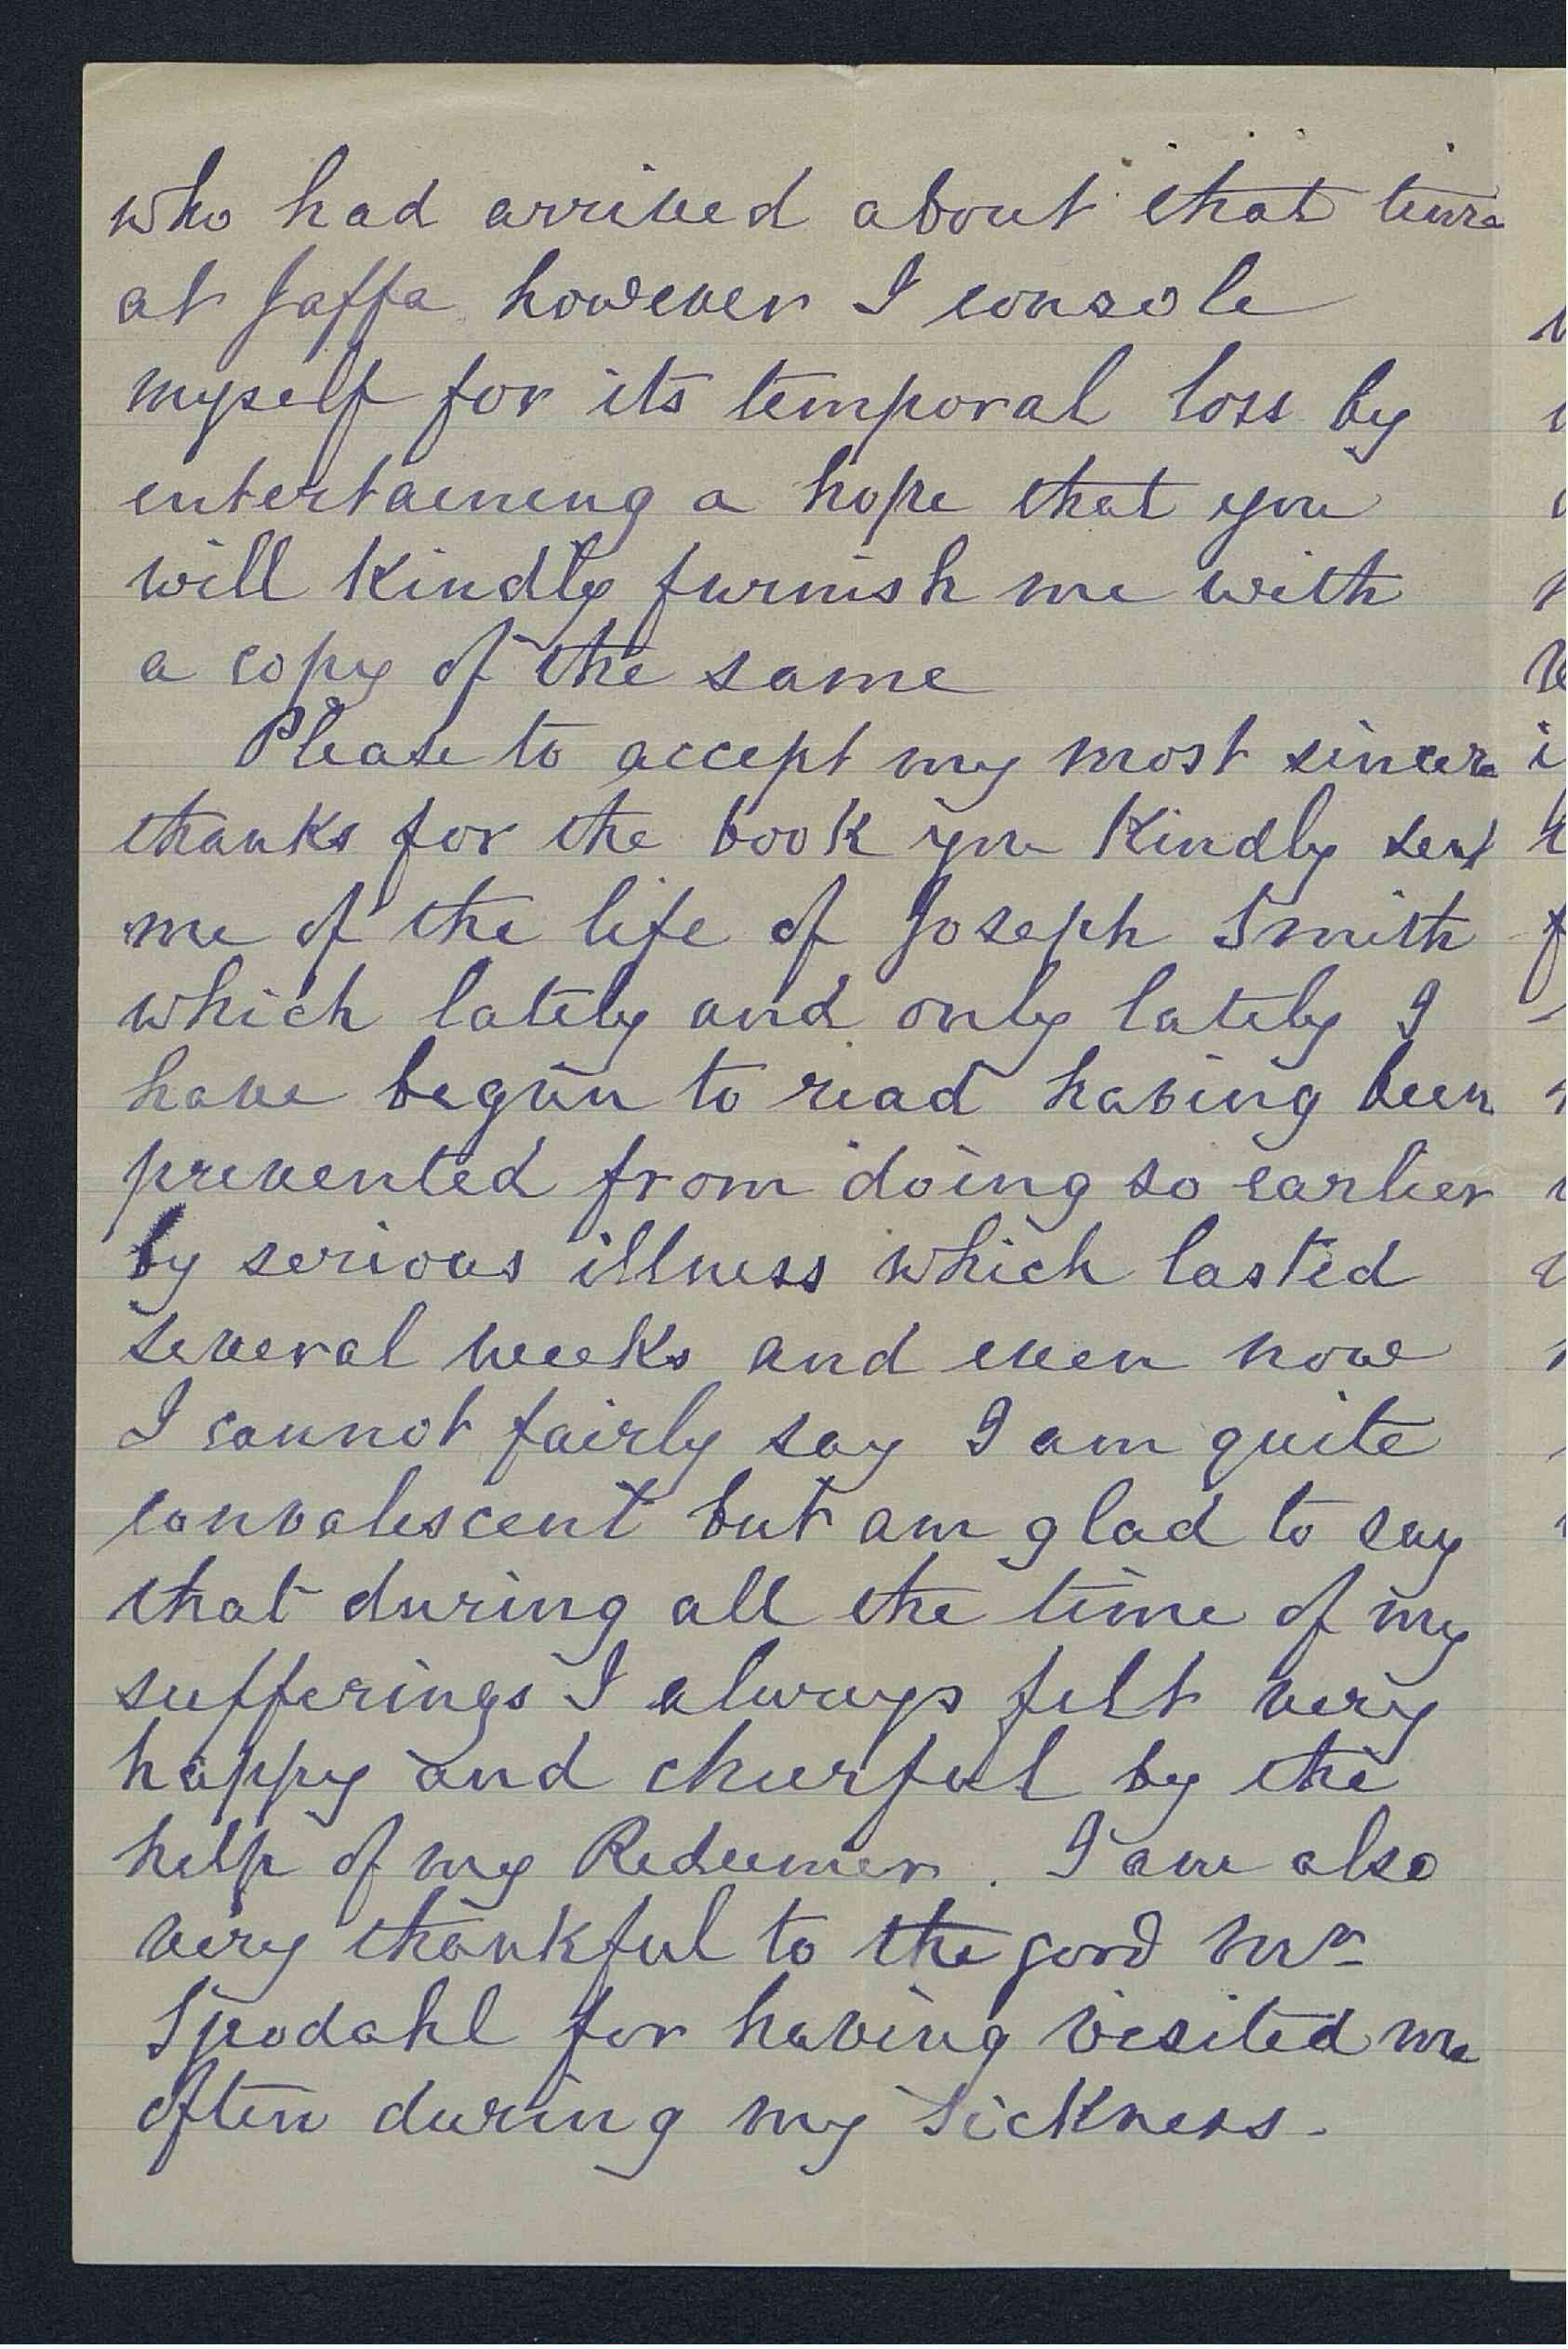 who had arrived about that time
at Jaffa however I console
myself for its temporal loss by
entertaening a hope that you
will Kindly furnish me with
a copy of the same
Please to accept my most sincere
thanks for the book you Kindly sent
me of the life of Joseph Smith
which lately and only lately I
have begun to read having been
prevented from doing so earlier
by serious illness which lasted
several weeks and even now
I cannot fairly say I am quite
convalescent but am glad to say
that during all the time of my
sufferings I always felt very
happy and cheerful by the
help of my Redeemer. I am also
very thankful to the good Mr
Sjrodahl for having visited me
often during my sickness.